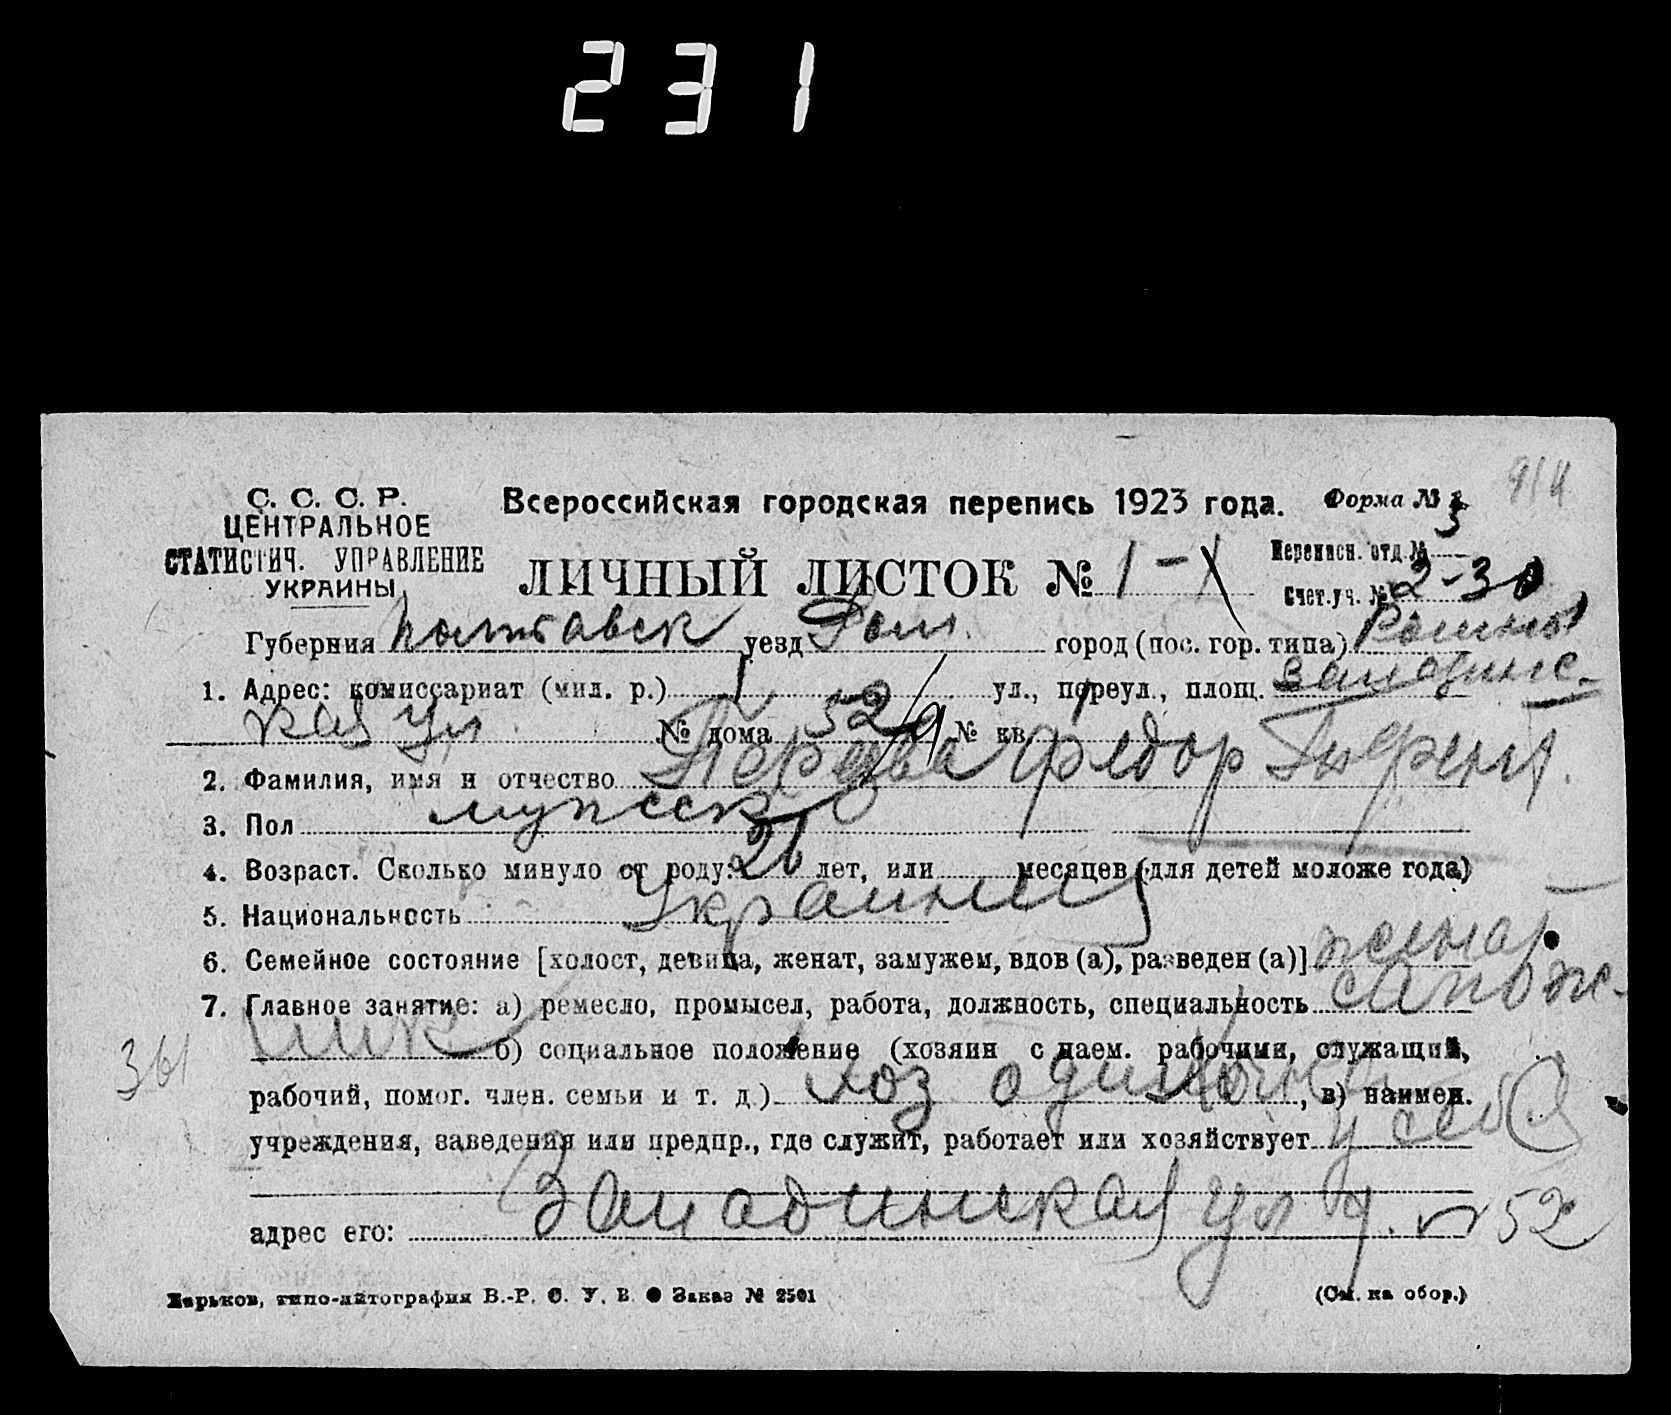 231
914
С. С. С. Р.
ЦЕНТРАЛЬНОЕ
СТАТИСТИЧ. УПРАВЛЕНИЕ
УКРАИНЫ
Всероссийская городская перепись 1923 года.
Форма № 3
ЛИЧНЫЙ ЛИСТОК № 1-
Переписн. отд. №
Счет.уч. № 2-30
Губерния Полтавск уезд Ром. город (пос. гор. типа) Ромны
1. Адрес: комиссариат (мил. р.) 1 ул., переул., площ. Западинс-
кая ул. № дома 52/9 № кв.
2. Фамилия, имя и отчество Федор
3. Пол мужск
4. Возраст. Сколько минуло от роду: 26 лет, или месяцев (для детей моложе года)
5. Национальность Украинец
6. Семейное состояние [холост, девица, женат, замужем, вдов (а), разведен (а)] женат
7. Главное занятие: а) ремесло, промысел, работа, должность, специальность сапож-
ник б) социальное положение (хозяин с наем. рабочими, служащий,
361
рабочий, помог. член. семьи и т. д.) хоз одиночка, в) наимен.
учреждения, заведения или предпр., где служит, работает или хозяйствует у себя
адрес его: Западинская ул № 52
Харьков, типо-литография В.-Р. С. У. В. Заказ № 2501
(См. на обор.)